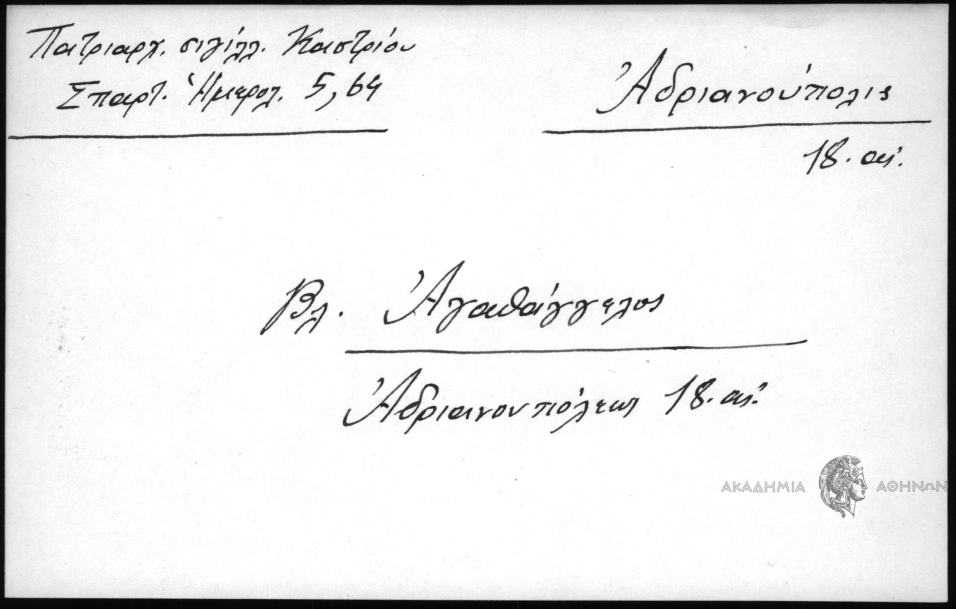 Πατριαρχ. σιγίλλ. Καστρίου
Σπαρτ. Ἡμερολ. 5, 64
Ἀδριανούπολις
18. αἰ.
Βλ. Ἀγαθάγγελος
Ἀδριανουπόλεως 18. αἰ.
ΑΚΑΔΗΜΙΑ ΑΘΗΝΩΝ